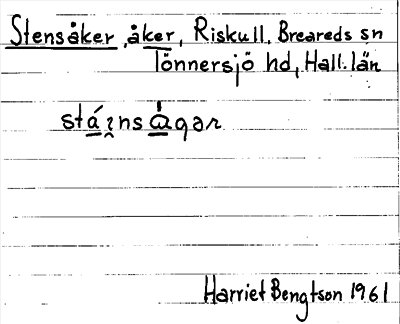 Stensåker, åker, Riskull, Breareds sn
Tönnersjö hd, Hall. län
Harriet Bengtson 1961